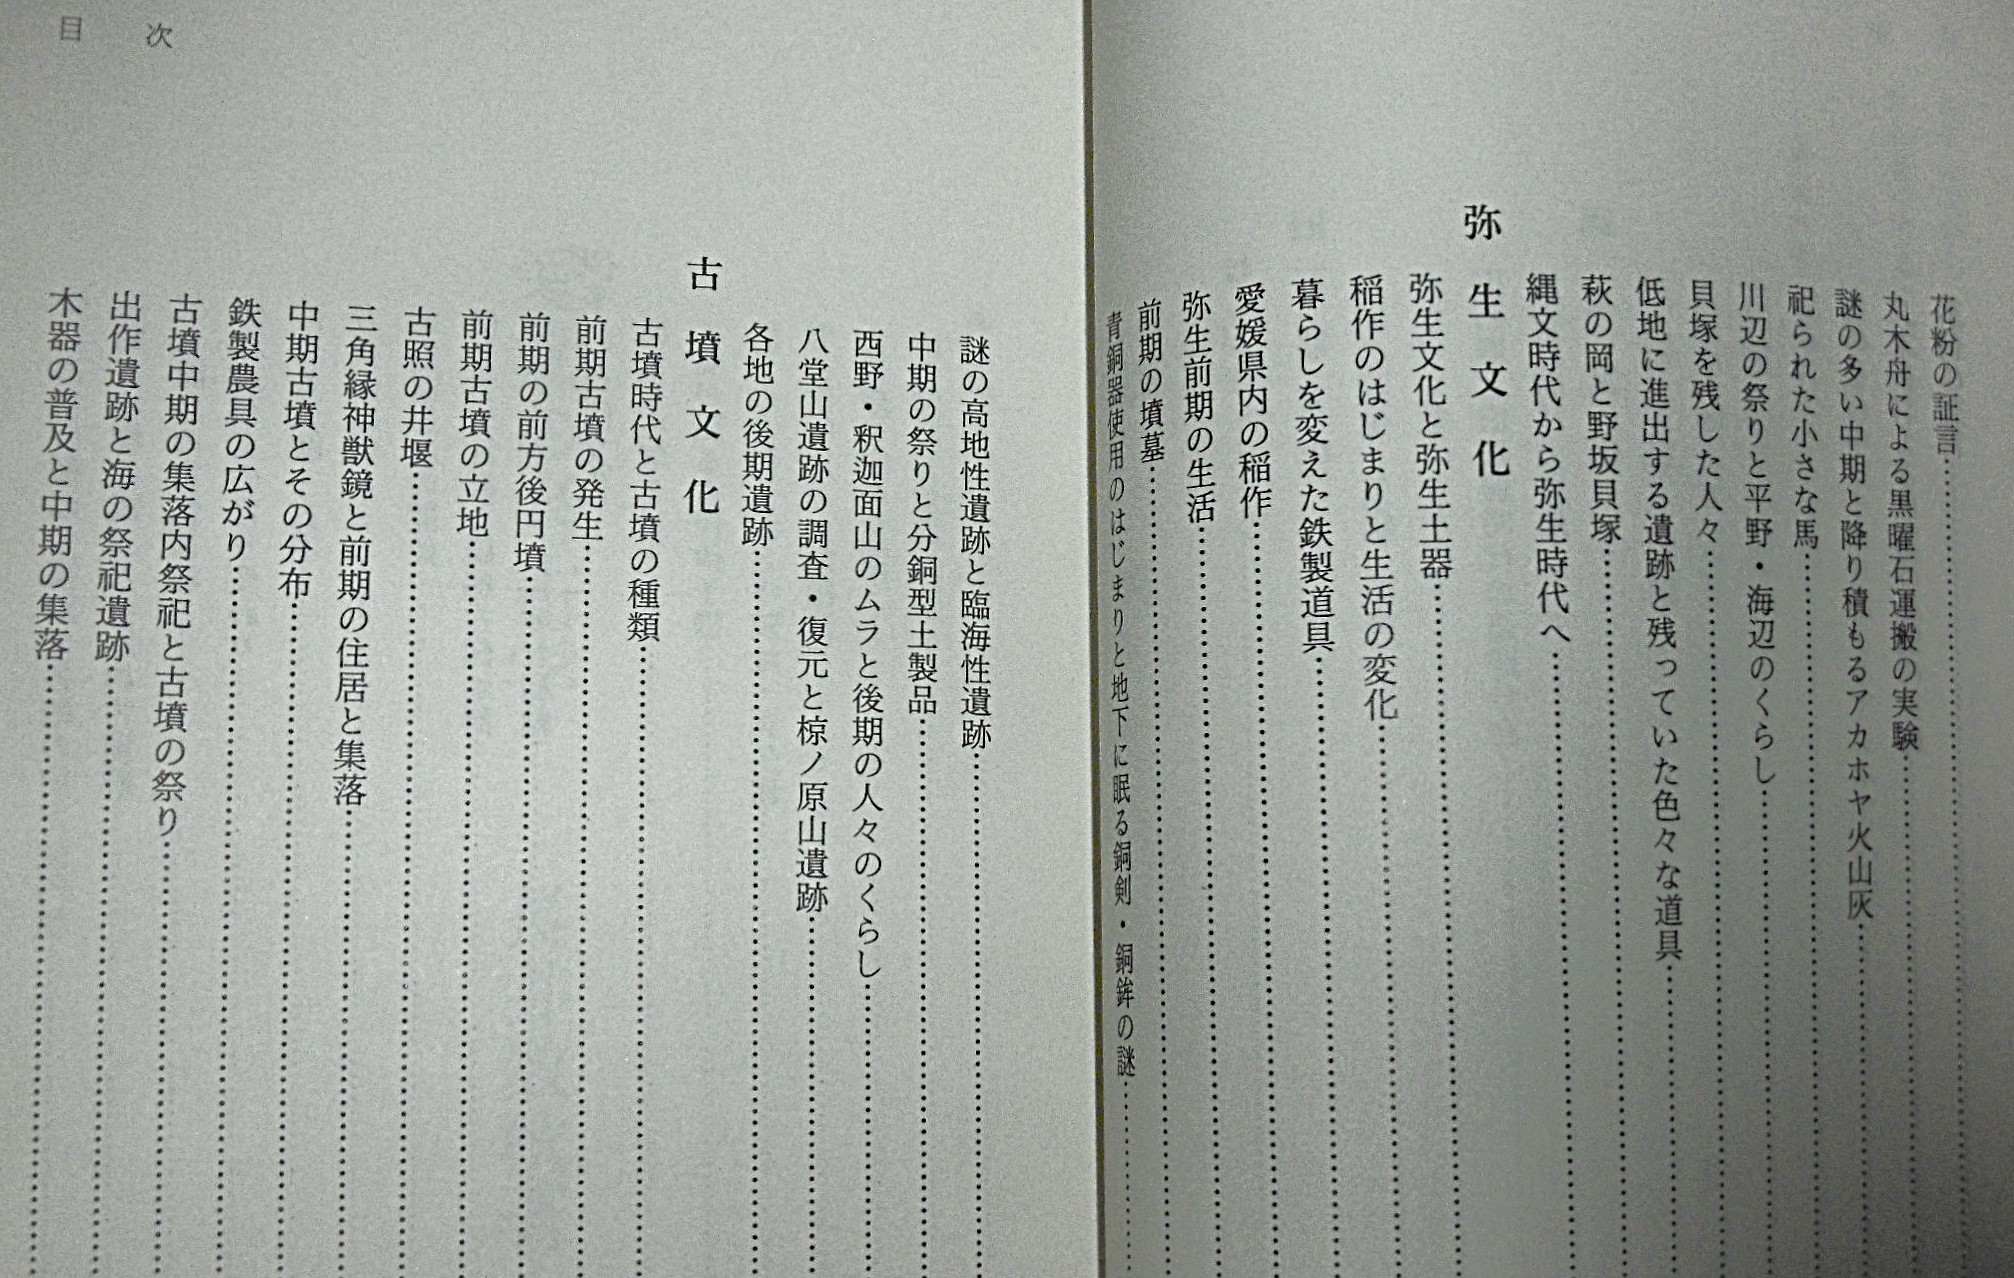 花粉の証言
丸木舟による黒曜石運搬の実験
謎の多い中期と降り積もるアカホヤ火山灰
祀られた小さな馬
川辺の祭りと平野・海辺のくらし
貝塚を残した人々
低地に進出する遺跡と残っていた色々な道具
萩の岡と野坂貝塚
縄文時代から弥生時代へ
弥生文化
弥生文化と弥生土器
稲作のはじまりと生活の変化
暮らしを変えた鉄製道具
愛媛県内の稲作
弥生前期の生活
前期の墳墓
青銅器使用のはじまりと地下に眠る銅剣・銅鉾の謎
目次
謎の高地性遺跡と臨海性遺跡
中期の祭りと分銅型土製品
西野・釈迦面山のムラと後期の人々のくらし
八堂山遺跡の調査・復元と椋ノ原山遺跡
各地の後期遺跡
古墳文化
古墳時代と古墳の種類
前期古墳の発生
前期の前方後円墳
前期古墳の立地
古照の井堰
三角縁神獣鏡と前期の住居と集落
中期古墳とその分布
鉄製農具の広がり
古墳中期の集落内祭祀と古墳の祭り
出作遺跡と海の祭祀遺跡
木器の普及と中期の集落